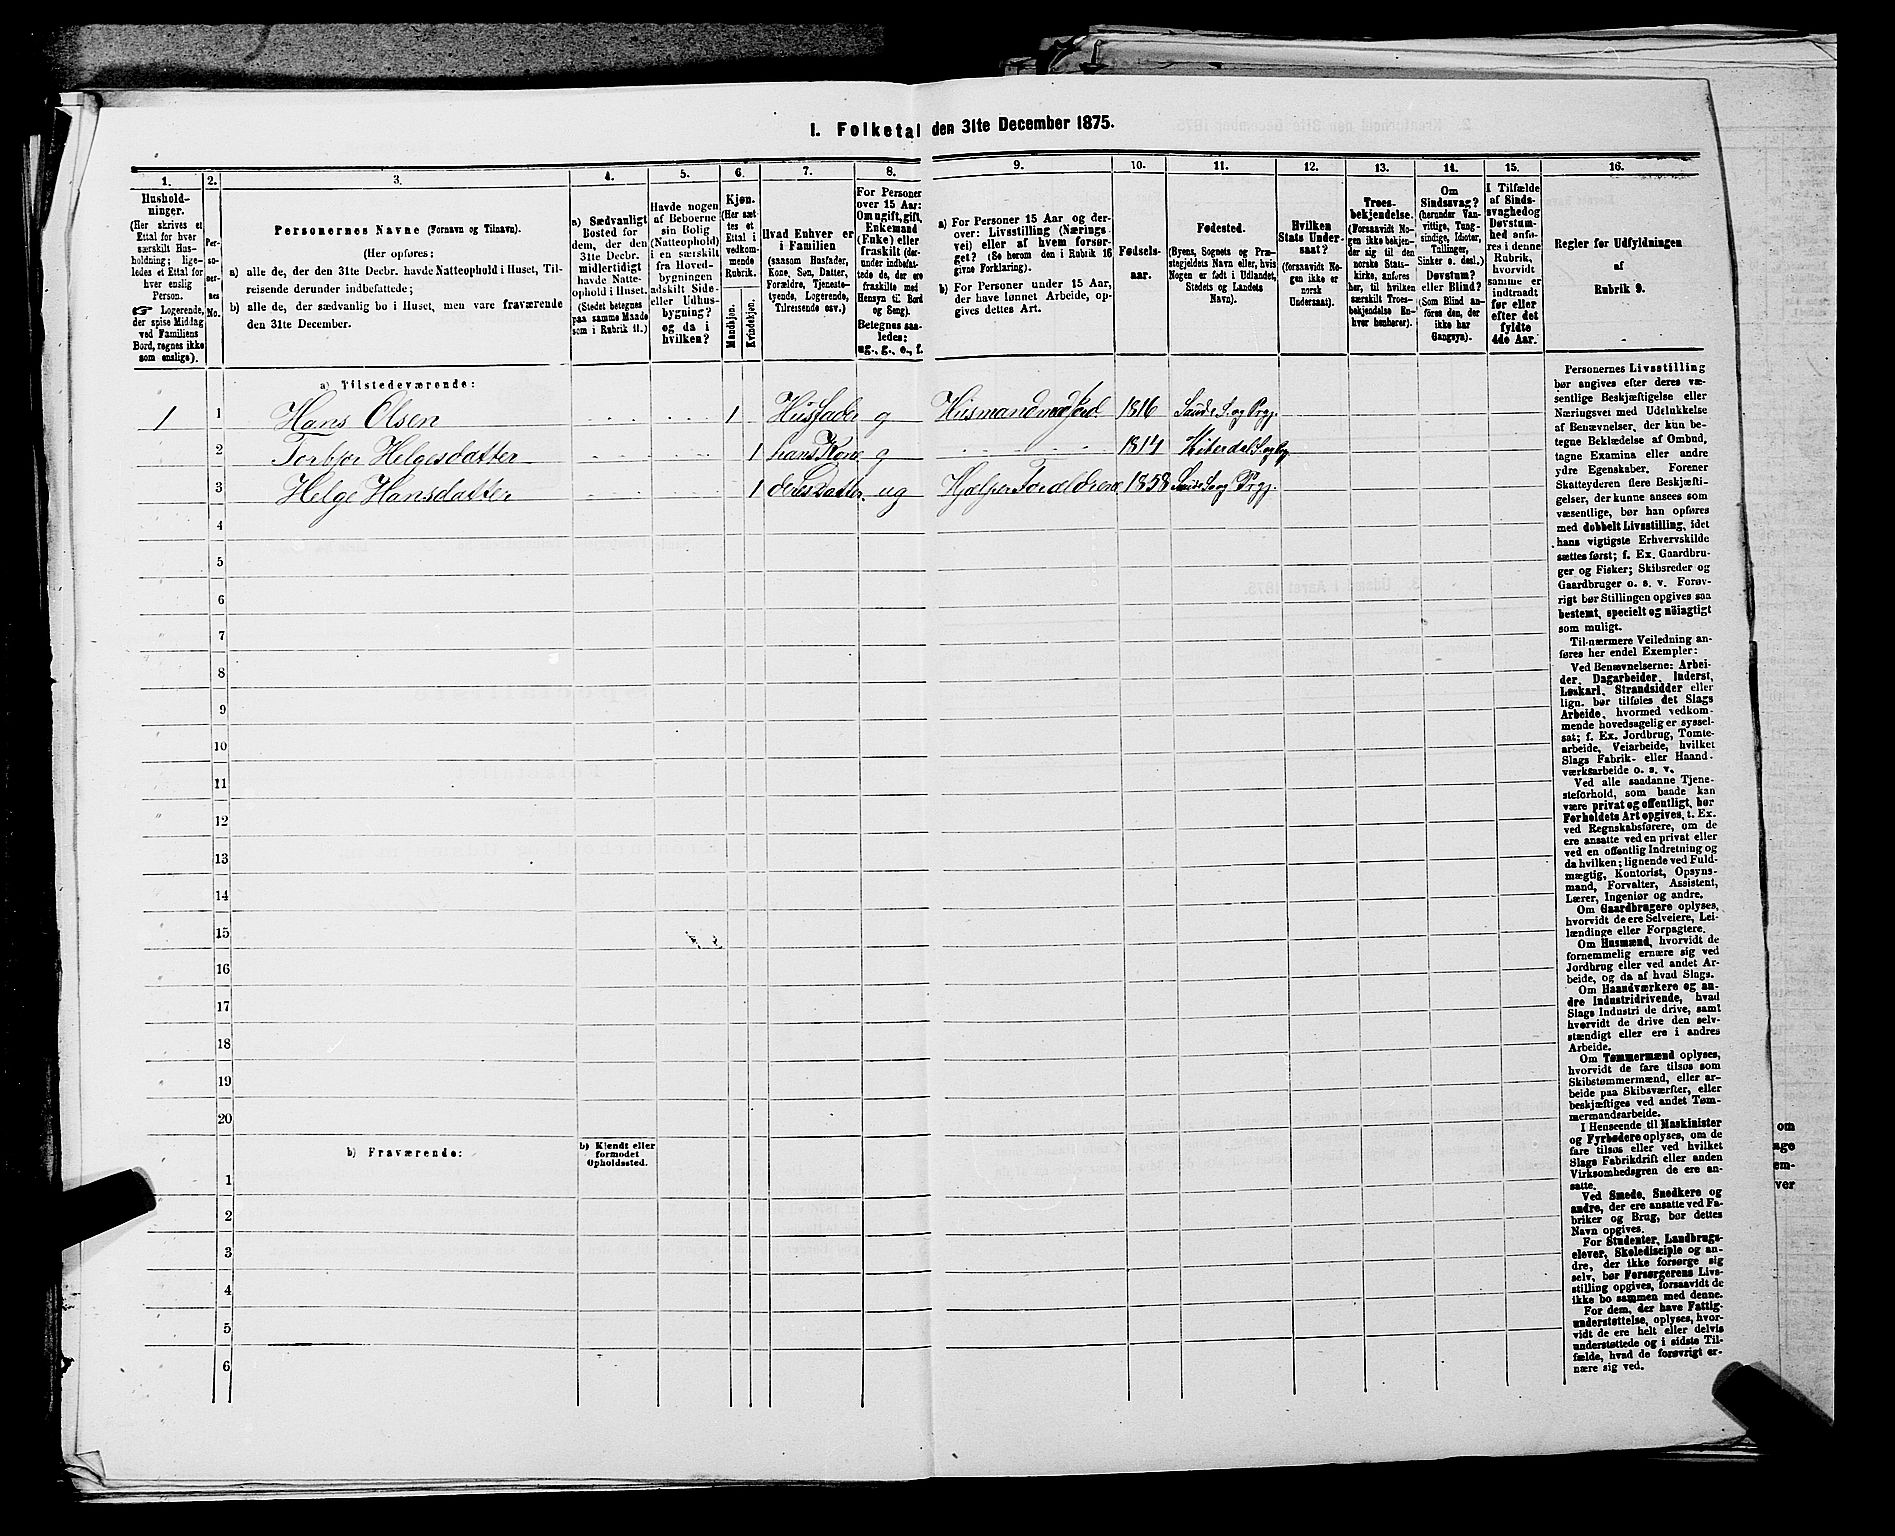 I. Folketal den 31te December 1875.
1.
2.
3.
4.
5.
6.
7.
8.
9.
10.
11.
12.
13.
14.
15.
16.
Hushold-
ninger.
(Her skrives et
Ettal for hver
særskilt Hus-
holdning; lige-
ledes et Ettal for
hver enslig
Person.
☞ Logerende,
der spise Middag
ved Familiens
Bord, regnes ikke
som enslige).
Per-
so-
ner-
nes
No.
Personernes Navne (Fornavn og Tilnavn).
(Her opføres:
a) alle de, der den 31te Decbr. havde Natteophold i Huset, Til-
reisende derunder indbefattede;
b) alle de, der sædvanlig bo i Huset, men vare fraværende
den 31te December.
a) Sædvanligt
Bosted for
dem, der den
31te Decbr.
midlertidigt
havde Natte-
ophold i Huset.
(Stedet betegnes
paa samme Maade
som i Rubrik 11.)
Havde nogen
af Beboerne
sin Bolig
(Natteophold)
i en særskilt
fra Hoved-
bygningen
adskilt Side-
eller Udhus-
bygning?
og da i
hvilken?
Kjøn.
(Her sæt
tes et
Ettal i
vedkom-
mende
Rubrik.
Mandkjøn.
Kvindekjøn.
Hvad Enhver er
i Familien
(saasom Husfader,
Kone, Søn, Datter,
Forældre, Tjeneste-
tyende, Logerende,
Tilreisende osv.)
For Personer
over 15 Aar:
Om ugift, gift,
Enkemand
(Enke) eller
fraskilt (der-
under indbefat-
tede de, der ere
fraskilte med
Hensyn til Bord
og Seng).
Betegnes saa-
ledes:
ug., g., e., f.
a) For Personer 15 Aar og der-
over: Livsstilling (Nærings-
vei) eller af hvem forsør-
get? (Se herom den i Rubrik 16
givne Forklaring).
b) For Personer under 15 Aar,
der have lønnet Arbeide, op-
gives dettes Art.
Fødsels-
aar.
Fødested.
(Byens, Sognets og Præ-
stegjeldets Navn eller, hvis
Nogen er født i Udlandet,
Stedets og Landets
Navn).
Hvilken
Stats Under-
saat?
(forsaavidt No-
gen ikke er
norsk
Undersaat).
Troes-
bekjendelse.
(Forsaavidt No-
gen ikke bekjen-
der sig til den
norske Stats-
kirke, anføres
her, til hvilken
særskilt Troes-
bekjendelse En-
hver henhører).
Om
Sindssvag?
(herunder Van-
vittige, Tung-
sindige, Idioter,
Tullinger,
Sinker o. desl.)
Døvstum?
eller Blind?
(Som Blind an-
føres den, der
ikke har
Gangsyn).
I Tilfælde
af Sinds-
svaghed og
Døvstum-
hed anfø-
res i denne
Rubrik,
hvorvidt
samme er
indtraadt
før eller
efter det
fyldte
4de Aar.
Regler for Udfyldningen
af
Rubrik 9.
a) Tilstedeværende:
1 1 Hans Olsen 1 Husfader g Husmand med Jord. 1816 Saude S. og Prgj.
2 Torbjør Helgesdatter 1 hans Kone g 1814 Hiterdal S. og Prgj
3 Helge Hansdatter 1 deres Datter. ug Hjelper Foraldrene 1858 Saude S og Prgj.
4
5
6
7
8
9
10
11
12
13
14
15
16
17
18
19
20
b) Fraværende:
b) Kjendt eller
formodet
Opholdssted.
1
2
3
4
5
6
Personernes Livsstilling
bør angives efter deres væ-
sentlige Beskjæftigelse eller
Næringsvei med Udelukkelse
af Benævnelser, der kun be-
tegne Beklædelse af Ombud,
tagne Examina eller andre
ydre Egenskaber. Forener
Skatteyderen flere Beskjæfti-
gelser, der kunne ansees som
væsentlige, bør han opføres
med dobbelt Livsstilling, idet
hans vigtigste Erhvervskilde
sættes først; f. Ex. Gaardbru-
ger og Fisker; Skibsreder og
Gaardbruger o. s. v. Forøv-
rigt bør Stillingen opgives saa
bestemt, specielt og nøiagtigt
som muligt.
Til nærmere Veiledning an-
føres her endel Exempler:
Ved Benævnelserne: Arbei-
der, Dagarbeider, Inderst,
Løskarl, Strandsidder eller
lign. bør tilføies det Slags
Arbeide, hvormed vedkom-
mende hovedsagelig er syssel-
sat; f. Ex. Jordbrug, Tomte-
arbeide, Veiarbeide, hvilket
Slags Fabrik- eller Haand-
værksarbeide o. s. v.
Ved alle saadanne Tjene-
steforhold, som baade kan
være privat og offentligt, bør
Forholdets Art opgives, t. Ex.
ved Regnskabsførere, om de
ere ansatte ved en privat eller
ved en offentlig Indretning og
da hvilken; lignende ved Fuld-
mægtig, Kontorist, Opsyns-
mand, Forvalter, Assistent,
Lærer, Ingeniør og andre.
Om Gaardbrugere oplyses,
hvorvidt de ere Selveiere, Lei-
lændinge eller Forpagtere.
Om Husmænd, hvorvidt de
fornemmelig ernære sig ved
Jordbrug eller ved andet Ar-
beide, og da af hvad Slags.
Om Haandværkere og an-
dre Industridrivende, hvad
Slags Industri de drive, samt
hvorvidt de drive den selv-
stændigt eller ere i andres
Arbeide.
Om Tømmermænd oplyses,
hvorvidt de fare tilsøs som
Skibstømmermænd, eller ar-
beide paa Skibsværfter, eller
beskjæftiges ved andet Tøm-
mermandsarbeide.
I Henseende til Maskinister
og Fyrbødere oplyses, om de
fare tilsøs eller ved hvilket
Slags Fabrikdrift eller anden
Virksomhedsgren de ere an-
satte.
Ved Smede, Snedkere og
andre, der ere ansatte ved Fa-
briker og Brug, bør dettes
Navn opgives.
For Studenter, Landbrugs-
elever, Skoledisciple og an-
dre, der ikke forsørge sig
selv, bør Forsørgerens Livs-
stilling opgives, forsaavidt de
ikke bo sammen med denne.
For dem, der have Fattig-
understøttelse, oplyses, hvor-
vidt de ere helt eller delvis
understøttede og i sidste Til-
fælde, hvad de forøvrigt er-
nære sig ved.